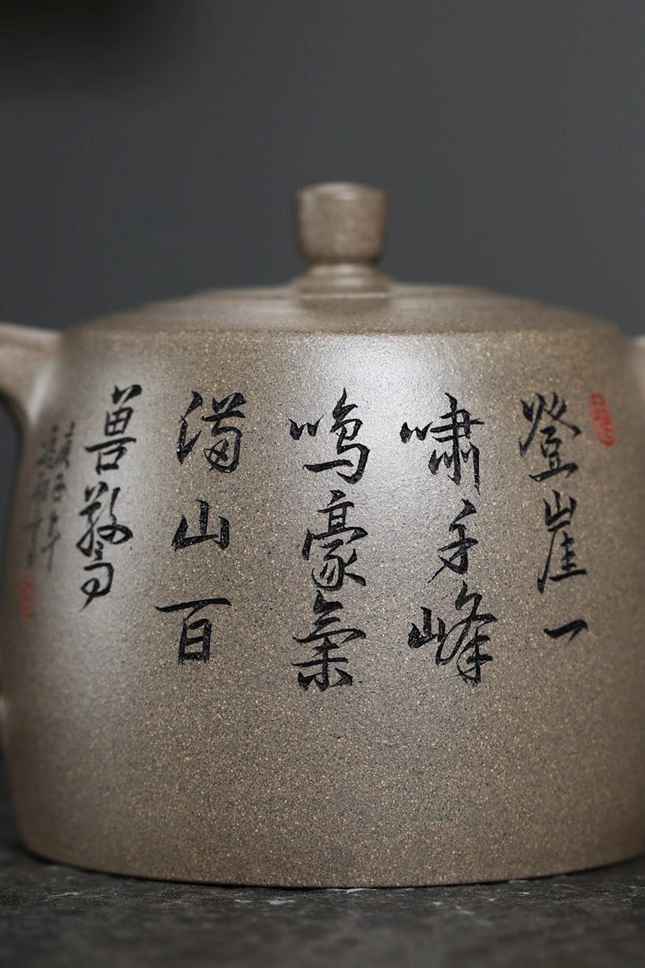 登崖一
啸千峰
鸣豪氣
满山百
兽驚